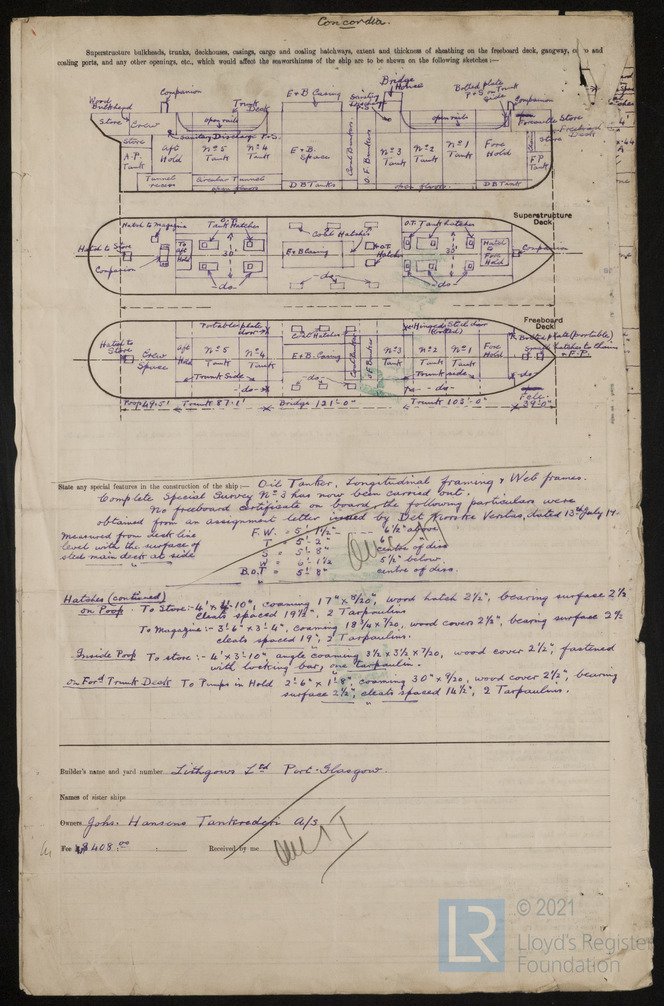 Concordia.
Superstructure bulkheads, trunks, deckhouses, casings, cargo and coaling hatchways, extent and thickness of sheathing on the freeboard deck, gangway, and
coaling ports, and any other openings, etc., which would affect the seaworthiness of the ship are to be shown on the following sketches :—
Wood Bulkhead
Companion
Trunk Deck
E & B Casing
Sanitary Discharge
Bridge House
Bolted plate P & S in Trunk Side
Companion
Store
Crew
open rails
open rails
Forecastle Store
Freeboard Deck
Sanitary Discharge P & S.
Store
A.P. Tank
Aft Hold
Nº 5 Tank
Nº 4 Tank
E & B. Space
Coal Bunkers
O.F. Bunkers
Nº 3 Tank
Nº 2 Tank
Nº 1 Tank
Fore Hold
Store
F.P. Tank
Tunnel recess
Circular Tunnel
open floors
D B Tanks
open floors
D B Tank
Superstructure Deck
Hatch to Magazine
O.T. Tank Hatches
Coal Hatches
O.T. Tank hatches
Hatch to Store
Companion
To Aft Hold
30'
E & B Casing
O.T. Hatches
30'
Hatch to Fore Hold
Companion
—do—
—do—
—do—
Freeboard Deck
Portable plate door
Coal Hatches
Hinged Steel door (bolted)
Bolted plate (portable)
Small Hatches to Chain & F.P.
Hatch to Store
Crew Space
Aft Hold
Nº 5 Tank
Nº 4 Tank
E & B. Casing
Coal Bunkers
O.F. Bunkers
Nº 3 Tank
Nº 2 Tank
Nº 1 Tank
Fore Hold
Trunk Side
—do—
—do—
Trunk side
—do—
—do—
Poop 49.5'
Trunk 87.1'
Bridge 121'-0"
Trunk 103'-0"
Fcle 39'-0"
State any special features in the construction of the ship :— Oil Tanker, Longitudinal framing & Web frames.
Complete Special Survey Nº 3 has now been carried out.
No freeboard certificate on board, the following particulars were
obtained from an assignment letter issued by Det Norske Veritas, dated 13th July 14-
Measured from deck line
level with the surface of
steel main deck at side
F.W. = 5'-1½" — 6½" above
T = 5'-2" 6" "
S = 5'-8" centre of disc
W = 6'-1½ 5½" below
B.O.T = 5'-8" centre of disc.
Hatches (continued)
on Poop. To Store:- 4' x 4'-10", coaming 17" x 8/20, wood hatch 2½", bearing surface 2½
cleats spaced 19½", 2 Tarpaulins
To Magazine:- 3'-6" x 3'-4", coaming 18¾ x 7/20, wood covers 2½", bearing surface 2½
cleats spaced 19", 2 Tarpaulins.
Inside Poop To store:- 4' x 3'-10", angle coaming 3½ x 3½ x 7/20, wood cover 2½", fastened
with locking bar, one tarpaulin.
on Ford Trunk Deck To Pumps in Hold 2'-6" x 1'-8", coaming 30" x 9/20, wood cover 2½", bearing
surface 2½", cleats spaced 14½", 2 Tarpaulins.
Builder's name and yard number Lithgows Ltd Port-Glasgow.
Names of sister ships
Owners Johs. Hansens Tankrederi A/S
Fee 408.00 : : Received by me
© 2021
LR
Lloyd's Register
Foundation